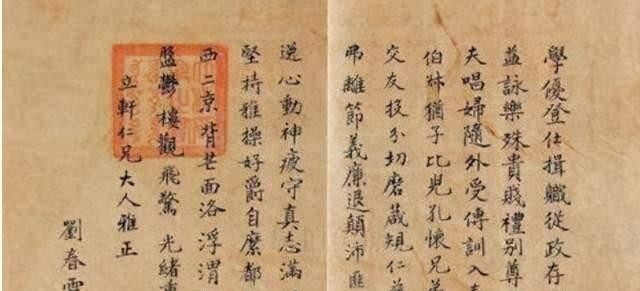 學優登仕攝職從政存
益詠樂殊貴賤禮別尊
夫唱婦隨外受傅訓入
伯叔猶子比兒孔懷兄
交友投分切磨箴規仁
弗離節義廉退顛沛匪
逐心動神疲守真志滿
堅持雅操好爵自縻都
西二京背芒面洛浮渭
盤鬱樓觀飛驚 光緒
立軒仁兄大人雅正
劉春